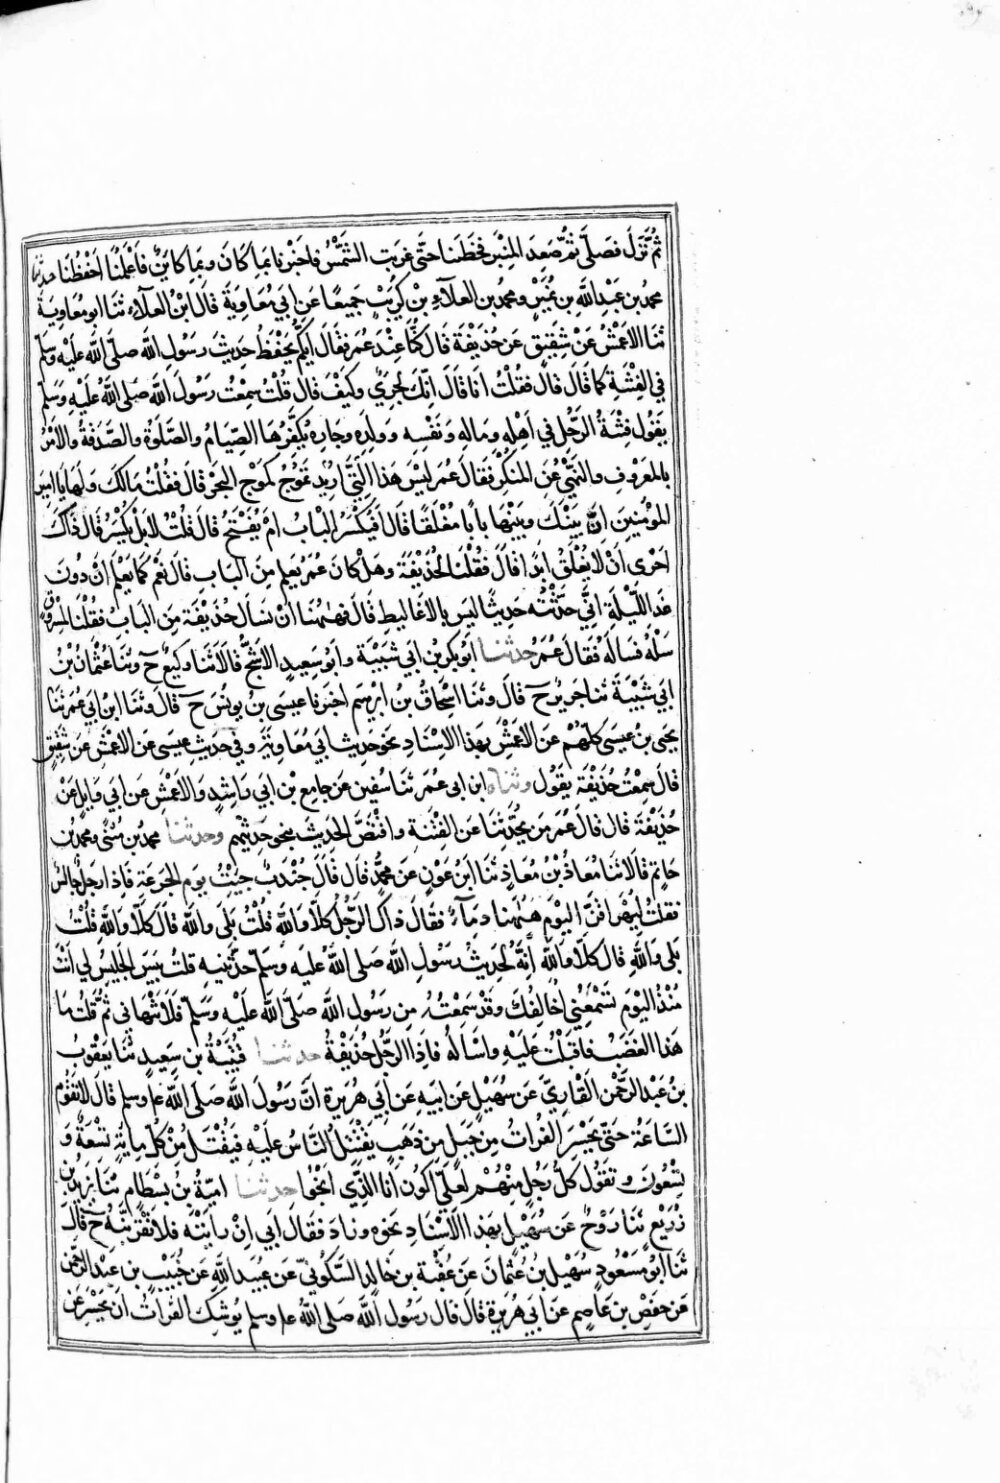 ثُمَّ نَزَلَ فَصَلَّى ثُمَّ صَعِدَ المِنْبَرَ فَخَطَبَنَا حَتَّى غَرَبَتِ الشَّمْسُ فَاخْبَرَنَا بِمَا كَانَ وَبِمَا كَايِنٌ فَاَعْلَمُنَا اَحْفَظُنَا حدثنا
محمد بن عَبْدِ اللَّهِ بن نُمَيْرٍ ومحمد بن العَلَاءِ بْنِ كُرَيْبٍ جَمِيعًا عَن اَبِي مُعَاوِيَةَ قَالَ ابْنُ العَلَاءِ ثَنَا ابو مُعَاوِيَةَ
ثنا الاعْمَشُ عَنْ شَقِيْقٍ عَنْ حُذَيْفَةَ قَالَ كُنَّا عِنْدَ عُمَرَ فَقَالَ اَيُّكُمْ يَحْفَظُ حَدِيثَ رَسُولِ اللَّهِ صلى اللَّه عَلَيْهِ وسلم
في الفِتْنَةِ كَما قَالَ قَالَ فَقُلْتُ اَنَا قَالَ اِنَّكَ لَجَرِيٌّ وَكَيْفَ قَالَ قُلْتُ سَمِعْتُ رَسُولَ اللَّهِ صلى اللَّه عَلَيْهِ وَسَلَّمَ
يَقُولُ فِتْنَةُ الرَّجُلِ في اَهْلِهِ وَمَالِهِ وَنَفْسِهِ وَوَلَدِهِ وَجَارِهِ يُكَفِّرُهَا الصِّيَامُ وَالصَّلَوةُ وَالصَّدَقَةُ وَالاَمْرُ
بالمَعْرُوفِ وَالنَّهْيُ عَنِ المُنْكَرِ فَقَالَ عُمَرُ لَيْسَ هَذَا الَّتِي اُرِيْدُ تَمُوجُ كَمَوْجِ البَحْرِ قَالَ فَقُلْتُ مَالَكَ وَلَهَا يَا امِيرَ
المُؤْمِنِينَ اِنَّ بَيْنَكَ وَبَيْنَهَا بَابًا مُغْلَقًا قَالَ اَفَيُكْسَرُ البَابُ اَمْ يُفْتَحُ قَالَ قُلْتُ لَا بَلْ يُكْسَرُ قَالَ ذَاكَ
اَحْرَى اَنْ لَا يُغْلَقَ اَبَدًا قَالَ فَقُلْنَا لِحُذَيْفَةَ وَهَلْ كَانَ عُمَرُ يَعْلَمُ مِنَ البَابِ قَالَ نَعَمْ كَمَا يَعْلَمُ اَنْ دُونَ
غَدٍ اللَّيْلَةَ اِنِّي حَدَّثْتُهُ حَدِيثًا لَيْسَ بالاَغَالِيطِ قَالَ فَهِبْنَا اَنْ نَسْاَلَ حُذَيْفَةَ مِنَ البَابُ فَقُلْنَا لِمَسْرُوقٍ
سَلْهُ فَسَالَهُ فَقَالَ عُمَرُ حدثنا اَبُو بَكْرِ بْنُ اَبي شَيْبَةَ وَ ابو سَعِيدٍ الاَشَجُّ قَالَا ثَنَا وَكِيْعٌ ح وَثَنَا عُثْمَانُ بْنُ
ابي شَيْبَةَ ثَنَا جَرِيرٌ ح قَالَ وَثَنَا اِسْحَاقُ بن ابْرهِيم اخبرنا عِيسَى بن يُونُسَ ح قَالَ وَثَنَا ابْنُ اَبي عُمَرَ ثَنَا
يَحيى بنُ عِيسَى كُلُّهُمْ عَنِ الاَعْمَشِ بِهَذَا الاِسْنَادِ نحو حَدِيث اَبي مُعَاوِيَةَ وَفي حَدِيثِ عِيسَى عَنِ الاعْمَشِ عَن شَقِيقٍ
قَالَ سَمِعْتُ حُذَيْفَةَ يَقُولُ وثناه ابن ابى عُمَرَ ثَنَا سُفْيَن عَنْ جَامِعِ بْنِ اَبي رَاشِدٍ وَالاَعْمَشِ عَن اَبي وَايِلٍ عَنْ
حُذَيْفَةَ قَالَ قَالَ عُمَرُ مَن يُحَدِّثُنَا عَنِ الفِتْنَةِ وَاقْتَصَّ الحَدِيثَ بِنحْوِ حَدِيثِهِم وحدثنا محمد بن مُثَنًّى ومحمد بن
حَاتِمٍ قَالَا ثَنَا مُعَاذُ بْنُ مُعَاذٍ ثَنَا ابْنُ عَوْنٍ عَن مُحَمَّدٍ قَالَ قَالَ جُنْدَبٌ جِيْتُ يَوْمَ الجَرَعَةِ فَاِذَا رَجُلٌ جَالِسٌ
فقلت لَيُهَرَاقَنَّ اليَوْمَ هَهُنَا دِمَاءٌ فَقَالَ ذَاكَ الرَّجُلُ كَلَّا وَاللَّه قُلْتُ بَلَى وَاللَّه قَالَ كَلَّا وَاللَّهِ قُلْتُ
بَلَى وَاللَّهِ قَالَ كَلَّا وَاللَّه اِنَّهُ لَحَدِيثُ رَسُولِ اللَّه صلى اللَّه عليه وسلم حَدَّثَنِيهِ قُلتُ بِيسَ الجَلِيسُ لي اَنْتَ
مُنْذُ اليَوْمَ تَسْمَعُنِي اُخَالِفُكَ وَقَدْ سَمِعْتَهُ مِن رَسُولِ اللَّه صَلَّى اللَّه عَلَيْهِ وَسَلَّمَ فَلَا تَنْهَانِي ثُمَّ قُلتُ مَا
هَذَا الغَضَبُ فَاَقْبَلْتُ عَلَيْهِ وَاَسْاَلُهُ فَاِذَا الرَّجُلُ حُذَيْفَةُ حدثنا قُتَيْبَةُ بن سَعِيدٍ ثَنَا يَعْقُوبُ
بنُ عَبْدِ الرَّحْمنِ القَارِيُّ عَن سُهَيْلٍ عَن اَبِيهِ عَن اَبي هُرَيرة اَنَّ رَسُولَ اللَّه صَلى اللَّه ع وسلم قَالَ لَا تَقُوْمُ
السَّاعَةُ حَتَّى يَحْسِرَ الفُرَاتُ مِن جَبَلٍ مِن ذَهَبٍ يَقْتَتِلُ النَّاسُ عَلَيْهِ فَيُقْتَلُ مِنْ كُلِّ مِايَةٍ تِسْعَةٌ وَ
تِسْعُونَ وَيَقُولُ كُلُّ رَجُلٍ مِنْهُمْ لَعَلِّي اَكُونُ اَنَا الَّذِي اَنْجُوا حدثنا اُمَيَّةُ بنُ بِسْطَامٍ ثَنَا يَزِيدُ بن
زُرَيْعٍ ثَنَا رَوْحٌ عَن سُهَيْلٍ بِهَذَا الاِسْنَادِ نَحْوَهُ وَزَادَ فَقَالَ اَبِي اِنْ رَايْتَهُ فَلَا تَقْرَبَنَّهُ ح قَالَ
ثَنَا اَبُو مَسْعُودٍ سُهَيْل بن عُثْمَانَ عَن عُقْبَةَ بن خَالِدٍ السَّكُونِيِّ عَن عُبَيْدِ اللَّهِ عَن خُبَيْبِ بن عَبْدِ الرَّحْمنِ
عَن حَفْصِ بن عَاصِمٍ عَن اَبي هُرَيْرَةَ قَالَ قَالَ رَسُولُ اللَّه صلى اللَّهُ ع وسلم يُوشِكُ الفُرَاتُ اَنْ يَحْسِرَ عَن